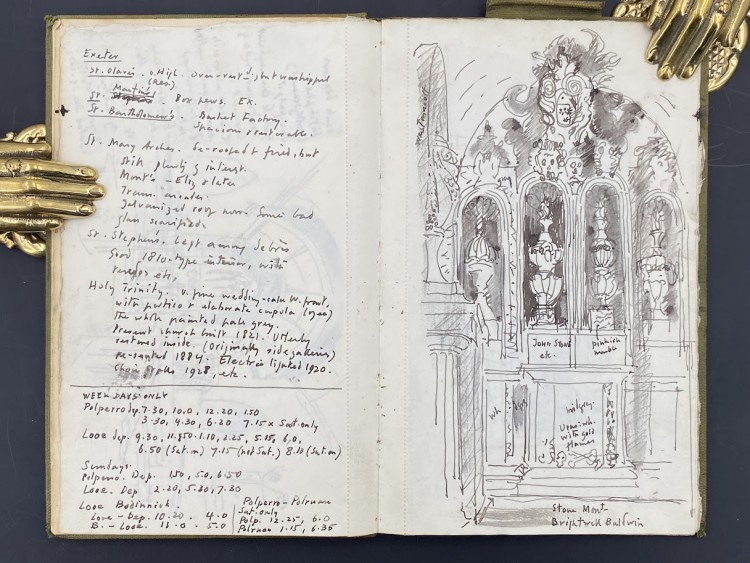 Exeter
St. Olaves. o. High. Over-rest^d, but worshipped
(Res)
St. Martins. Box pews. Ex.
St. Bartholomew's. Basket Factory.
Spacious & restorable.
St. Mary Arches. Re-roofed & fired, but
still plenty of interest.
Mont's - Eliz & later
Galvanized roof now. Some bad
glass
St. Stephens. Kept among debris
Good 1810-type interior, with
reredos etc.
Holy Trinity, v. fine wedding-cake W. front,
with portico & elaborate cupola (ogee)
The whole painted pale gray.
Present church built 1821. Utterly
restored inside. (Originally side galleries)
re-seated 1884. Electric lighted 1920.
Choir stalls 1928, etc.
WEEK DAYS ONLY
Polperro dep. 7.30, 10.0, 12.20, 1.50
3.30, 4.30, 6.20 7.15 x Sat. only
Looe dep. 9.30, 1.10, 2.25, 5.15, 6.0,
6.50 (Sat. n) 7.15 (not Sat.) 8.10 (Sat. on)
Sundays.
Polperro. Dep. 1.50, 5.0, 6.50
Looe. Dep 2.20, 5.30, 7.30
Looe Bodinnick.
Looe - Dep. 10.20. 4.0
B. - Looe. 11.0. 5.0
Polperro - Polruan
Sat. only
Polp. 12.25, 6.0
Polruan 1.15, 6.35
JOHN STONE
etc.
pinkish
marble
wh.
mid grey.
Urns: wh.
with gold
flames
Stone Mont.
Brightwell Baldwin